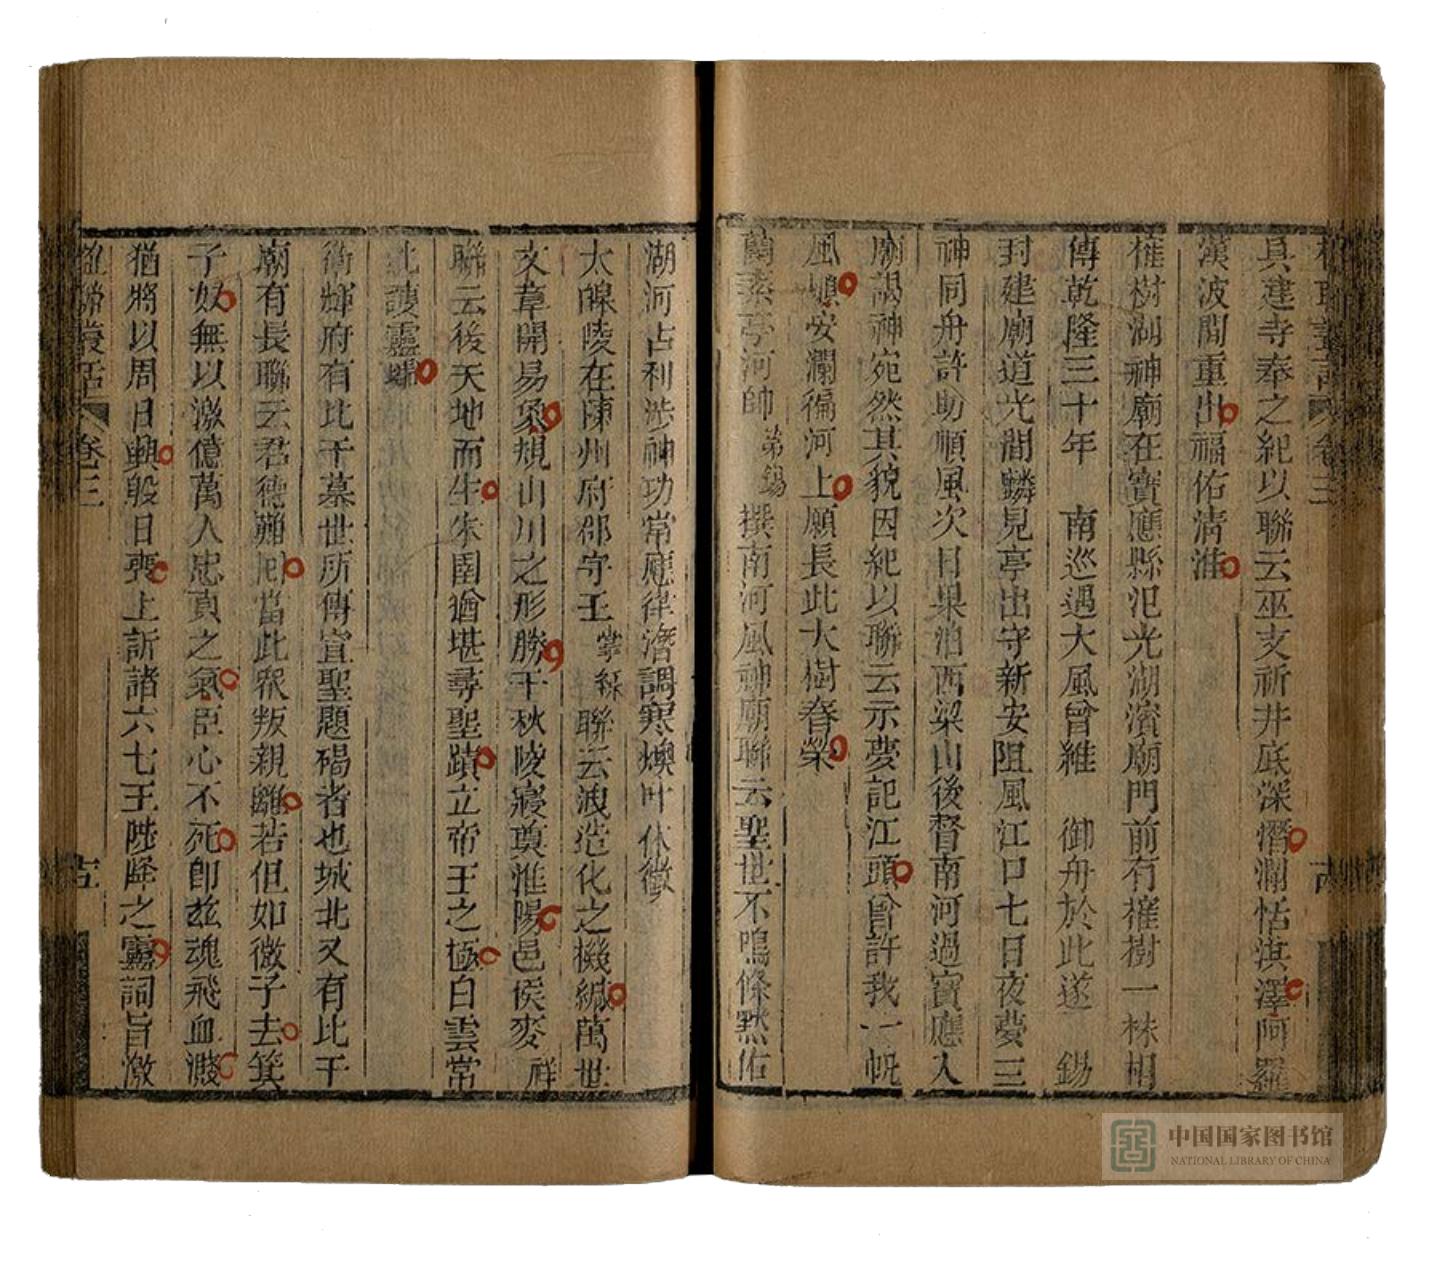 楹聯叢話 卷三
具建寺奉之紀以聯云巫支祈井底深潛瀾恬淇澤阿羅
漢波間重出福佑清淮
權樹湖神廟在寶應縣氾光湖濱廟門前有權樹一株相
傳乾隆三十年 南巡遇大風曾維 御舟於此遂 錫
封建廟道光間麟見亭出守新安阻風江口七日夜夢三
神同舟許助順風次日果泊西梁山後督南河過寶應入
廟謁神宛然其貌因紀以聯云示夢記江頭曾許我一帆
風順安瀾徧河上願長此大樹春榮
蘭素亭河帥第錫撰南河風神廟聯云聖世不鳴條默佑
湖河占利涉神功常應律潛調寒燠叶休徵
太皞陵在陳州府郡守王掌絲聯云洩造化之機緘萬世
文章開易象規山川之形勝千秋陵寢奠淮陽邑侯麥祥
聯云後天地而生朱圉猶堪尋聖蹟立帝王之極白雲常
此護靈蠵
衛輝府有比干墓世所傳宣聖題碣者也城北又有比干
廟有長聯云君德難回當此衆叛親離若但如微子去箕
子奴無以激億萬人忠貞之氣臣心不死卽茲魂飛血濺
猶將以周日興殷日喪上訴諸六七王陟降之靈詞旨激
楹聯叢話 卷三
中国国家图书馆
NATIONAL LIBRARY OF CHINA